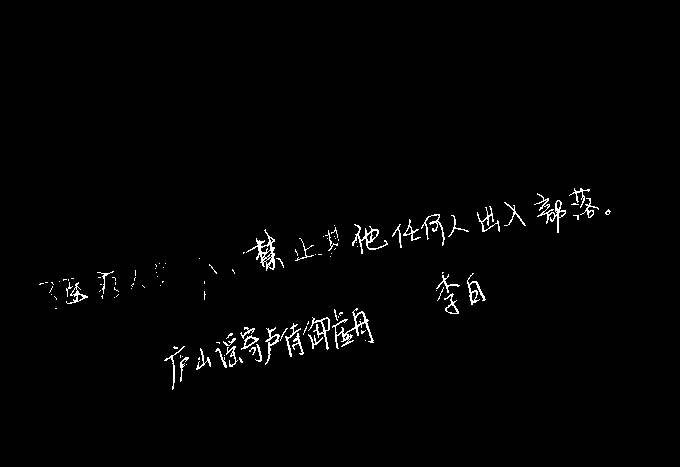 医疗人员外，禁止其他任何人出入部落。
庐山谣寄卢侍御虚舟 李白